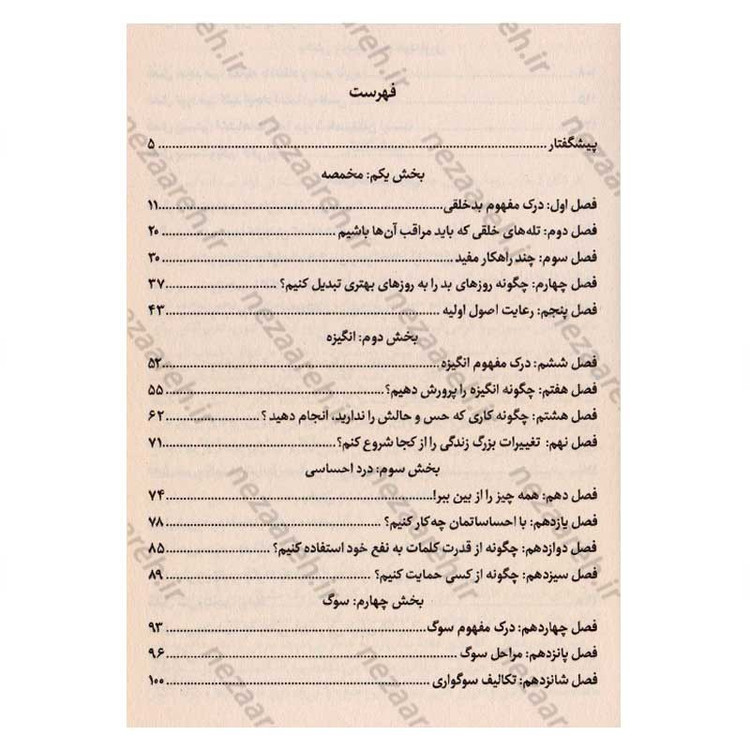 فهرست
پیشگفتار ........ ۵
بخش یکم: مخمصه
فصل اول: درک مفهوم بدخلقی ........ ۱۱
فصل دوم: تله‌های خلقی که باید مراقب آن‌ها باشیم ........ ۲۰
فصل سوم: چند راهکار مفید ........ ۳۰
فصل چهارم: چگونه روزهای بد را به روزهای بهتری تبدیل کنیم؟ ........ ۳۷
فصل پنجم: رعایت اصول اولیه ........ ۴۳
بخش دوم: انگیزه
فصل ششم: درک مفهوم انگیزه ........ ۵۲
فصل هفتم: چگونه انگیزه را پرورش دهیم؟ ........ ۵۵
فصل هشتم: چگونه کاری که حس و حالش را ندارید، انجام دهید ؟ ........ ۶۲
فصل نهم: تغییرات بزرگ زندگی را از کجا شروع کنم؟ ........ ۷۱
بخش سوم: درد احساسی
فصل دهم: همه چیز را از بین ببر! ........ ۷۴
فصل یازدهم: با احساساتمان چه‌کار کنیم؟ ........ ۷۸
فصل دوازدهم: چگونه از قدرت کلمات به نفع خود استفاده کنیم؟ ........ ۸۵
فصل سیزدهم: چگونه از کسی حمایت کنیم؟ ........ ۸۹
بخش چهارم: سوگ
فصل چهاردهم: درک مفهوم سوگ ........ ۹۳
فصل پانزدهم: مراحل سوگ ........ ۹۶
فصل شانزدهم: تکالیف سوگواری ........ ۱۰۰
nezaareh.ir